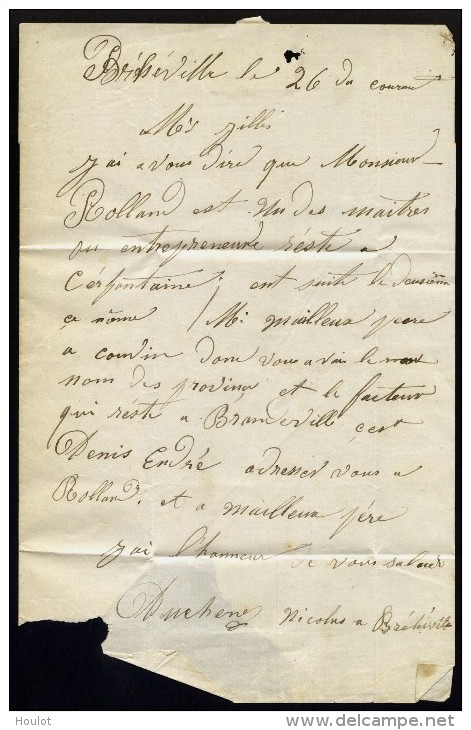 Bréhéville le 26 du courant
Mrs Gilles
j'ai a vous dire que Monsieur
Rolland est un des maitres
ou entrepreneure réste a
Cerfontaine; ent suite le deusiem
ce nome M. mailleux pere
a couvin donc vous avai le
nom des province et le facteur
qui réste a Brandeville c'est
Denis Endré adresser vous a
Rolland. et a mailleux pere
j'ai l'honneur de vous saluer
Duchene Nicolas a Bréhéville
Houlot
delcampe.net